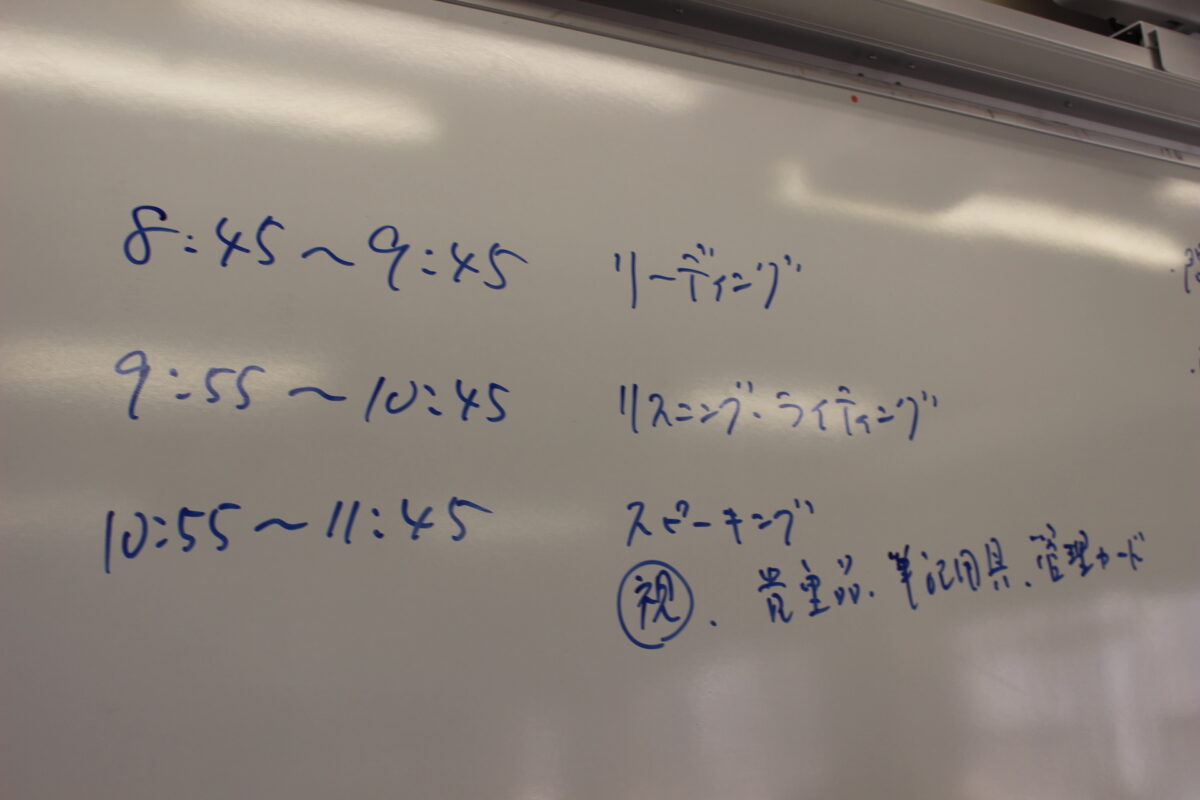 8:45～9:45 リーディング
9:55～10:45 リスニング・ライティング
10:55～11:45 スピーキング
視. 貴重品.筆記用具.管理カード